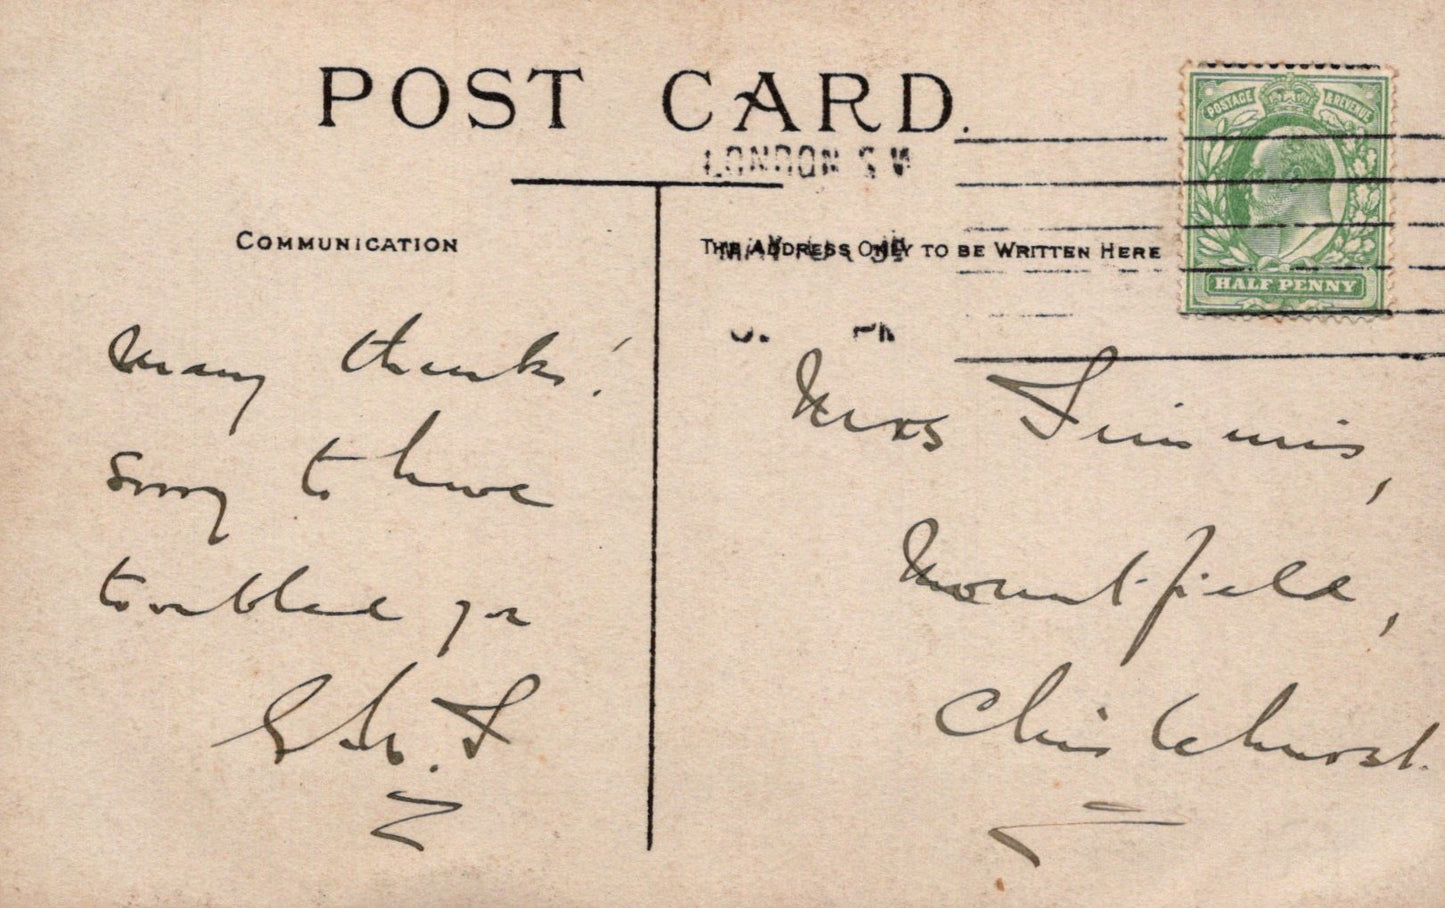 POST CARD.
LONDON S W
COMMUNICATION
THE ADDRESS ONLY TO BE WRITTEN HERE
POSTAGE & REVENUE
HALF PENNY
PM
Many thanks!
Sorry to have
troubled you
Mrs Simmis,
Mountfield,
Chislehurst.